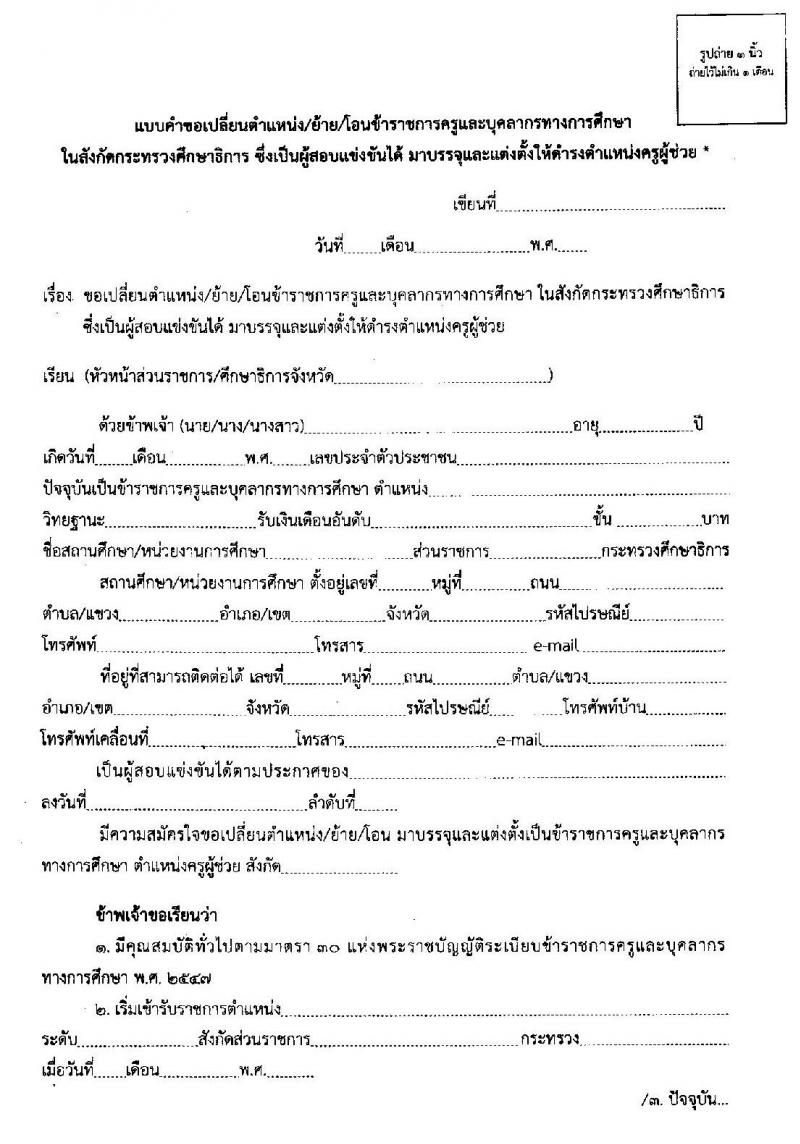 รูปถ่าย ๑ นิ้ว
ถ่ายไว้ไม่เกิน ๑ เดือน
แบบคำขอเปลี่ยนตำแหน่ง/ย้าย/โอนข้าราชการครูและบุคลากรทางการศึกษา
ในสังกัดกระทรวงศึกษาธิการ ซึ่งเป็นผู้สอบแข่งขันได้ มาบรรจุและแต่งตั้งให้ดำรงตำแหน่งครูผู้ช่วย *
เขียนที่
วันที่ เดือน พ.ศ.
เรื่อง ขอเปลี่ยนตำแหน่ง/ย้าย/โอนข้าราชการครูและบุคลากรทางการศึกษา ในสังกัดกระทรวงศึกษาธิการ
ซึ่งเป็นผู้สอบแข่งขันได้ มาบรรจุและแต่งตั้งให้ดำรงตำแหน่งครูผู้ช่วย
เรียน (หัวหน้าส่วนราชการ/ศึกษาธิการจังหวัด )
ด้วยข้าพเจ้า (นาย/นาง/นางสาว) อายุ ปี
เกิดวันที่ เดือน พ.ศ. เลขประจำตัวประชาชน
ปัจจุบันเป็นข้าราชการครูและบุคลากรทางการศึกษา ตำแหน่ง
วิทยฐานะ รับเงินเดือนอันดับ ขั้น บาท
ชื่อสถานศึกษา/หน่วยงานการศึกษา ส่วนราชการ กระทรวงศึกษาธิการ
สถานศึกษา/หน่วยงานการศึกษา ตั้งอยู่เลขที่ หมู่ที่ ถนน
ตำบล/แขวง อำเภอ/เขต จังหวัด รหัสไปรษณีย์
โทรศัพท์ โทรสาร e-mail
ที่อยู่ที่สามารถติดต่อได้ เลขที่ หมู่ที่ ถนน ตำบล/แขวง
อำเภอ/เขต จังหวัด รหัสไปรษณีย์ โทรศัพท์บ้าน
โทรศัพท์เคลื่อนที่ โทรสาร e-mail
เป็นผู้สอบแข่งขันได้ตามประกาศของ
ลงวันที่ ลำดับที่
มีความสมัครใจขอเปลี่ยนตำแหน่ง/ย้าย/โอน มาบรรจุและแต่งตั้งเป็นข้าราชการครูและบุคลากร
ทางการศึกษา ตำแหน่งครูผู้ช่วย สังกัด
ข้าพเจ้าขอเรียนว่า
๑. มีคุณสมบัติทั่วไปตามมาตรา ๓๐ แห่งพระราชบัญญัติระเบียบข้าราชการครูและบุคลากร
ทางการศึกษา พ.ศ. ๒๕๔๗
๒. เริ่มเข้ารับราชการตำแหน่ง
ระดับ สังกัดส่วนราชการ กระทรวง
เมื่อวันที่ เดือน พ.ศ.
/๓. ปัจจุบัน...